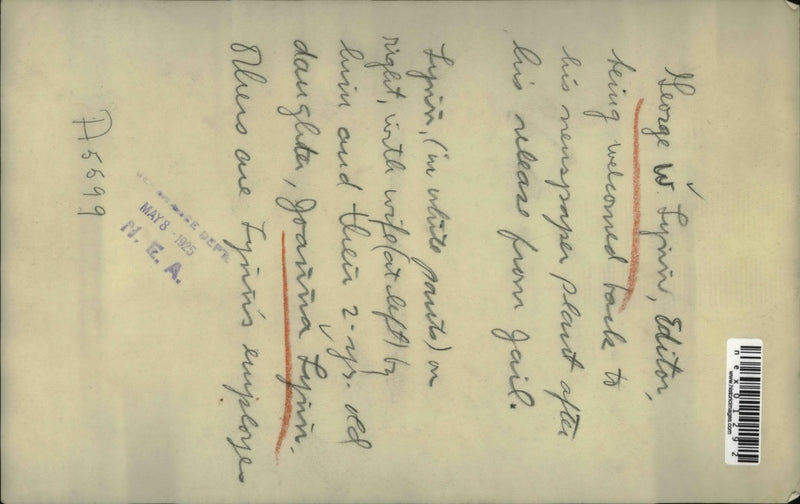 George W. Lynn, Editor,
being welcomed back to
his newspaper plant after
his release from jail.
Lynn, (in white pants) on
right, with wife (at left) by
him and their 2-yrs. old
daughter, Joanna Lynn.
Others are Lynn's employes
A5599
REFERENCE DEPT.
MAY 8 - 1925
N. E. A.
nex01292
www.historicimages.com